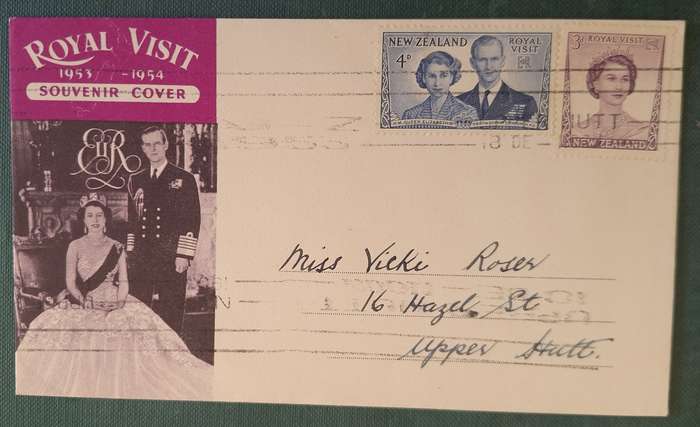 ROYAL VISIT
1953 - 1954
SOUVENIR COVER
EIIR
NEW ZEALAND
4D
ROYAL VISIT
3D ROYAL VISIT
NEW ZEALAND
HUTT
DE
Miss Vicki Roser
16 Hazel St
Upper Hutt.